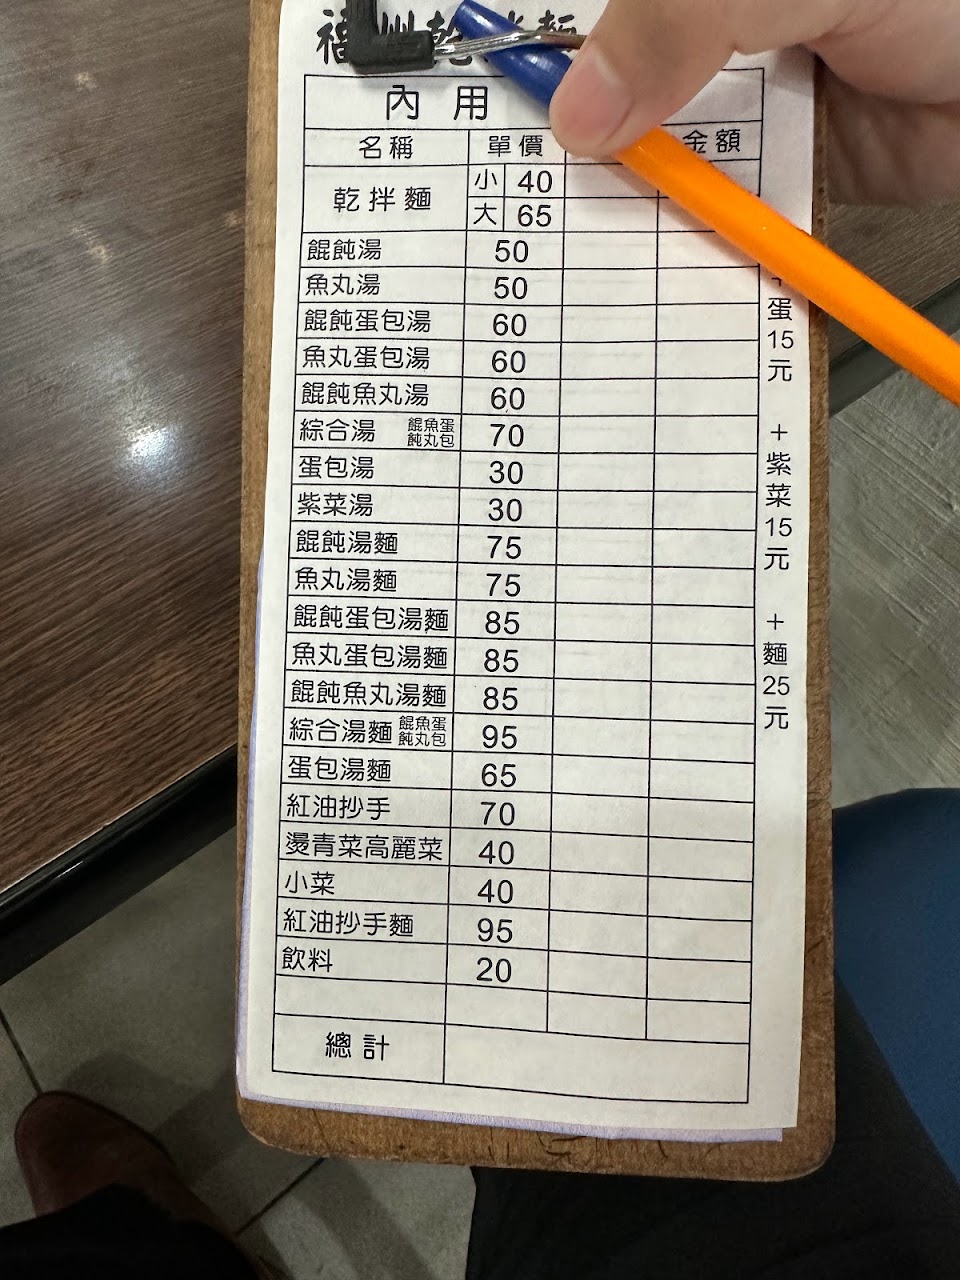 內用
名稱 單價 金額
乾拌麵 小 40
大 65
餛飩湯 50
魚丸湯 50
餛飩蛋包湯 60
魚丸蛋包湯 60
餛飩魚丸湯 60
綜合湯 餛魚蛋飩丸包 70
蛋包湯 30
紫菜湯 30
餛飩湯麵 75
魚丸湯麵 75
餛飩蛋包湯麵 85
魚丸蛋包湯麵 85
餛飩魚丸湯麵 85
綜合湯麵 餛魚蛋飩丸包 95
蛋包湯麵 65
紅油抄手 70
燙青菜高麗菜 40
小菜 40
紅油抄手麵 95
飲料 20
總計
+蛋15元
+紫菜15元
+麵25元